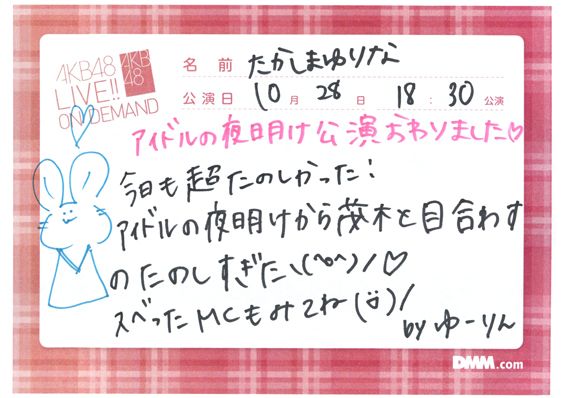 AKB48
LIVE!!
ON DEMAND
AKB
48
名前 たかしまゆりな
公演日 10月 28日 18:30公演
アイドルの夜明け公演おわりました♡
今日も超たのしかった!
アイドルの夜明けから茂木と目合わす
のたのしすぎた\(^o^)/♡
スベったMCもみてね(ü)/
by ゆーりん
DMM.com